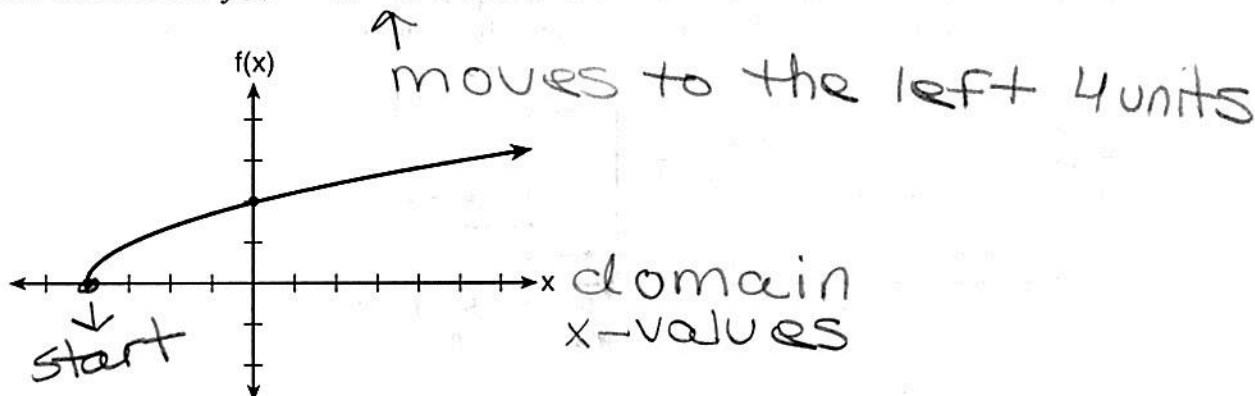 f(x)
moves to the left 4 units
x domain
x-values
start